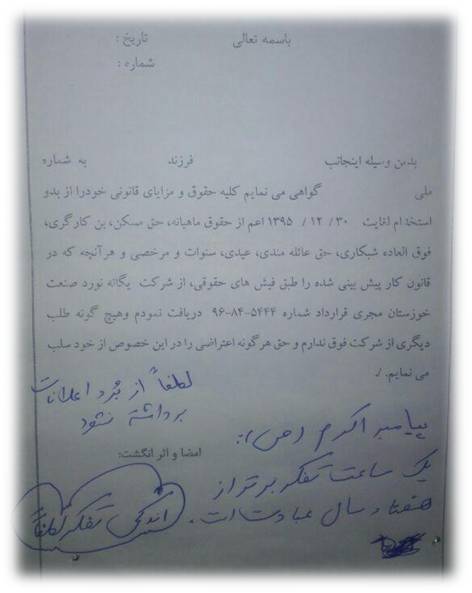 باسمه تعالی
تاریخ :
شماره :
بدین وسیله اینجانب فرزند به شماره
ملی گواهی می نمایم کلیه حقوق و مزایای قانونی خودرا از بدو
استخدام لغایت ۳۰ / ۱۲ / ۱۳۹۵ اعم از حقوق ماهیانه، حق مسکن، بن کارگری،
فوق العاده شبکاری، حق عائله مندی، عیدی، سنوات و مرخصی و هر آنچه که در
قانون کار پیش بینی شده را طبق فیش های حقوقی، از شرکت یگانه نورد صنعت
خوزستان مجری قرارداد شماره ۵۴۴۴-۸۴-۹۶ دریافت نمودم وهیچ گونه طلب
دیگری از شرکت فوق ندارم و حق هرگونه اعتراضی را در این خصوص از خود سلب
می نمایم. ./
لطفاً از بُرد اعلانات
برداشته نشود
امضا و اثر انگشت:
پیامبر اکرم (ص):
یک ساعت تفکر برتر از
هفتاد سال عبادت است.
اندکی تفکر لطفاً